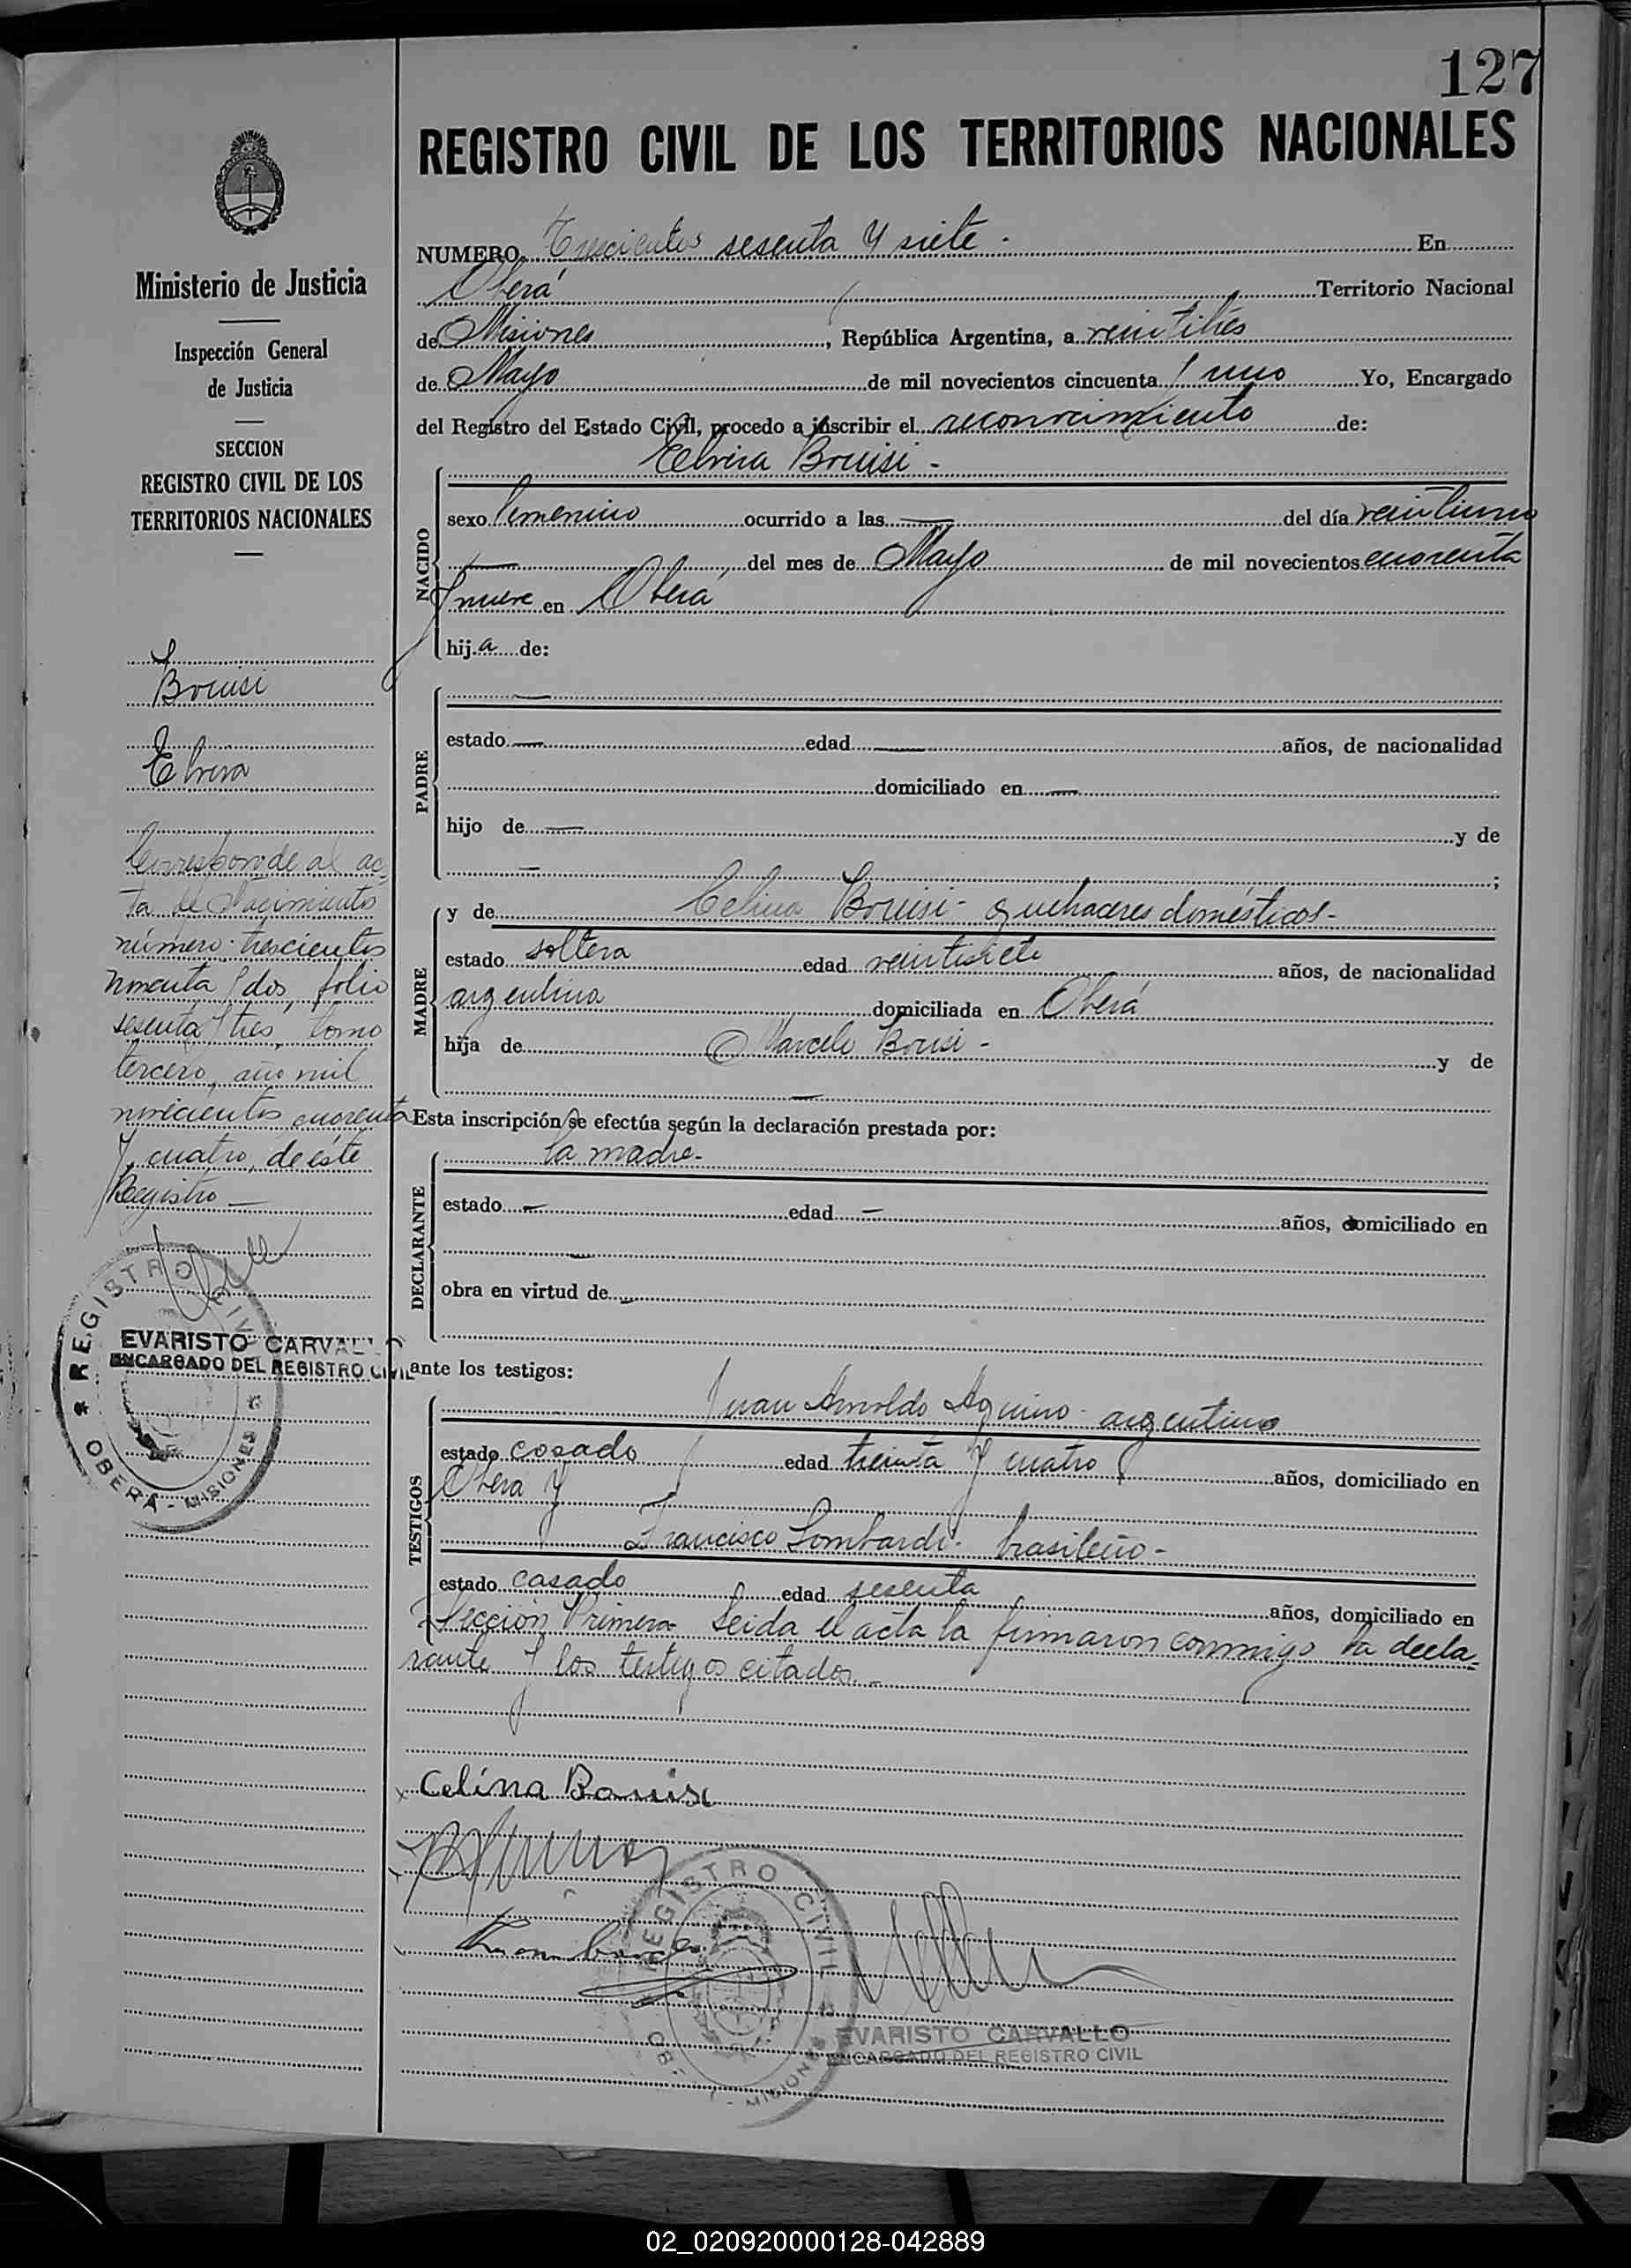 127
REGISTRO CIVIL DE LOS TERRITORIOS NACIONALES
Ministerio de Justicia
Inspección General
de Justicia
SECCION
REGISTRO CIVIL DE LOS
TERRITORIOS NACIONALES
Bruisi
Elvira
Corresponde al ac-
ta de Nacimiento
número trescientos
noventa y dos, folio
sesenta y tres, tomo
tercero, año mil
novecientos cuarenta
y cuatro, de éste
Registro
REGISTRO CIVIL
OBERÁ - MISIONES
EVARISTO CARVALLO
ENCARGADO DEL REGISTRO CIVIL
NUMERO Trescientos sesenta y siete. En
Oberá Territorio Nacional
de Misiones, República Argentina, a veintitrés
de Mayo de mil novecientos cincuenta y uno Yo, Encargado
del Registro del Estado Civil, procedo a inscribir el reconocimiento de:
Elvira Bruisi -
NACIDO
sexo femenino ocurrido a las — del día veintiuno
— del mes de Mayo de mil novecientos cuarenta
y nueve en Oberá
hija de:
PADRE
—
estado — edad — años, de nacionalidad
domiciliado en —
hijo de — y de
— ;
MADRE
y de Celina Bruisi - quehaceres domésticos -
estado soltera edad veintisiete años, de nacionalidad
argentina domiciliada en Oberá
hija de Marcelo Bruisi - y de
—
Esta inscripción se efectúa según la declaración prestada por:
DECLARANTE
la madre -
estado — edad — años, domiciliado en
—
obra en virtud de —
ante los testigos:
TESTIGOS
Juan Arnoldo Aquino - argentino
estado casado edad treinta y cuatro años, domiciliado en
Oberá y
Francisco Lombardi - brasileño -
estado casado edad sesenta años, domiciliado en
Sección Primera Leida el acta la firmaron conmigo la decla-
rante y los testigos citados. -
Celina Bruisi
REGISTRO CIVIL
MISIONES
EVARISTO CARVALLO
ENCARGADO DEL REGISTRO CIVIL
02_020920000128-042889